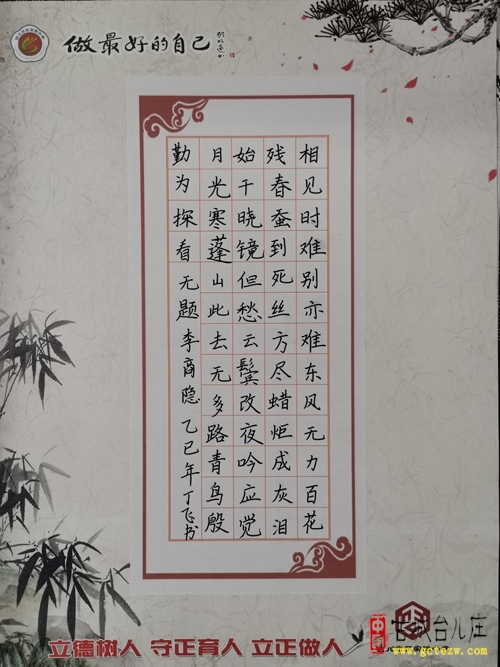 做最好的自己
相见时难别亦难东风无力百花
残春蚕到死丝方尽蜡炬成灰泪
始干晓镜但愁云鬓改夜吟应觉
月光寒蓬山此去无多路青鸟殷
勤为探看无题李商隐乙巳年丁飞书
立德树人 守正育人 立正做人
古城台儿庄
www.gotezw.com